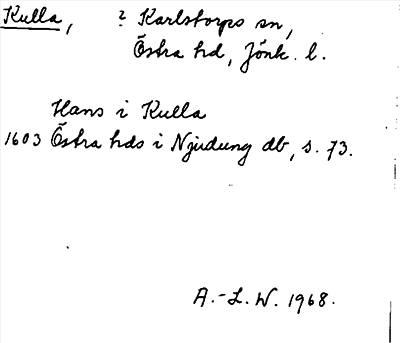 Kulla, ? Karlstorps sn,
Östra hd, Jönk. l.
Hans i Kulla
1603 Östra hds i Njudung db, s. 73.
A.-L. W. 1968.